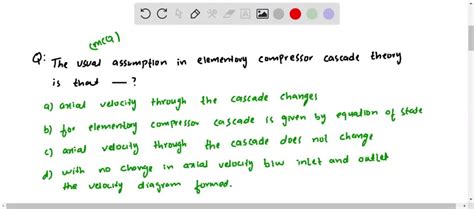 (MCQ)
Q: The usual assumption in elementary compressor cascade theory
is that — ?
a) axial velocity through the cascade changes
b) for elementary compressor cascade is given by equation of state
c) axial velocity through the cascade does not change
d) with no change in axial velocity b/w inlet and outlet
the velocity diagram formed.